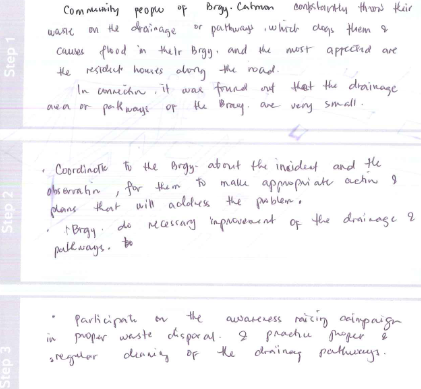 Step 1
Community people of Brgy. Catmon constantly throw their
waste on the drainage or pathways, which clogs them &
causes flood in their Brgy. and the most affected are
the resident houses along the road.
In connection, it was found out that the drainage
area or pathways of the Brgy. are very small.
Step 2
• Coordinate to the Brgy. about the incident and the
observation, for them to make appropriate action &
plans that will address the problem.
• Brgy. do necessary improvement of the drainage &
pathways.
Step 3
• Participate on the awareness raising campaign
in proper waste disposal. & practice proper &
regular cleaning of the drainage pathways.